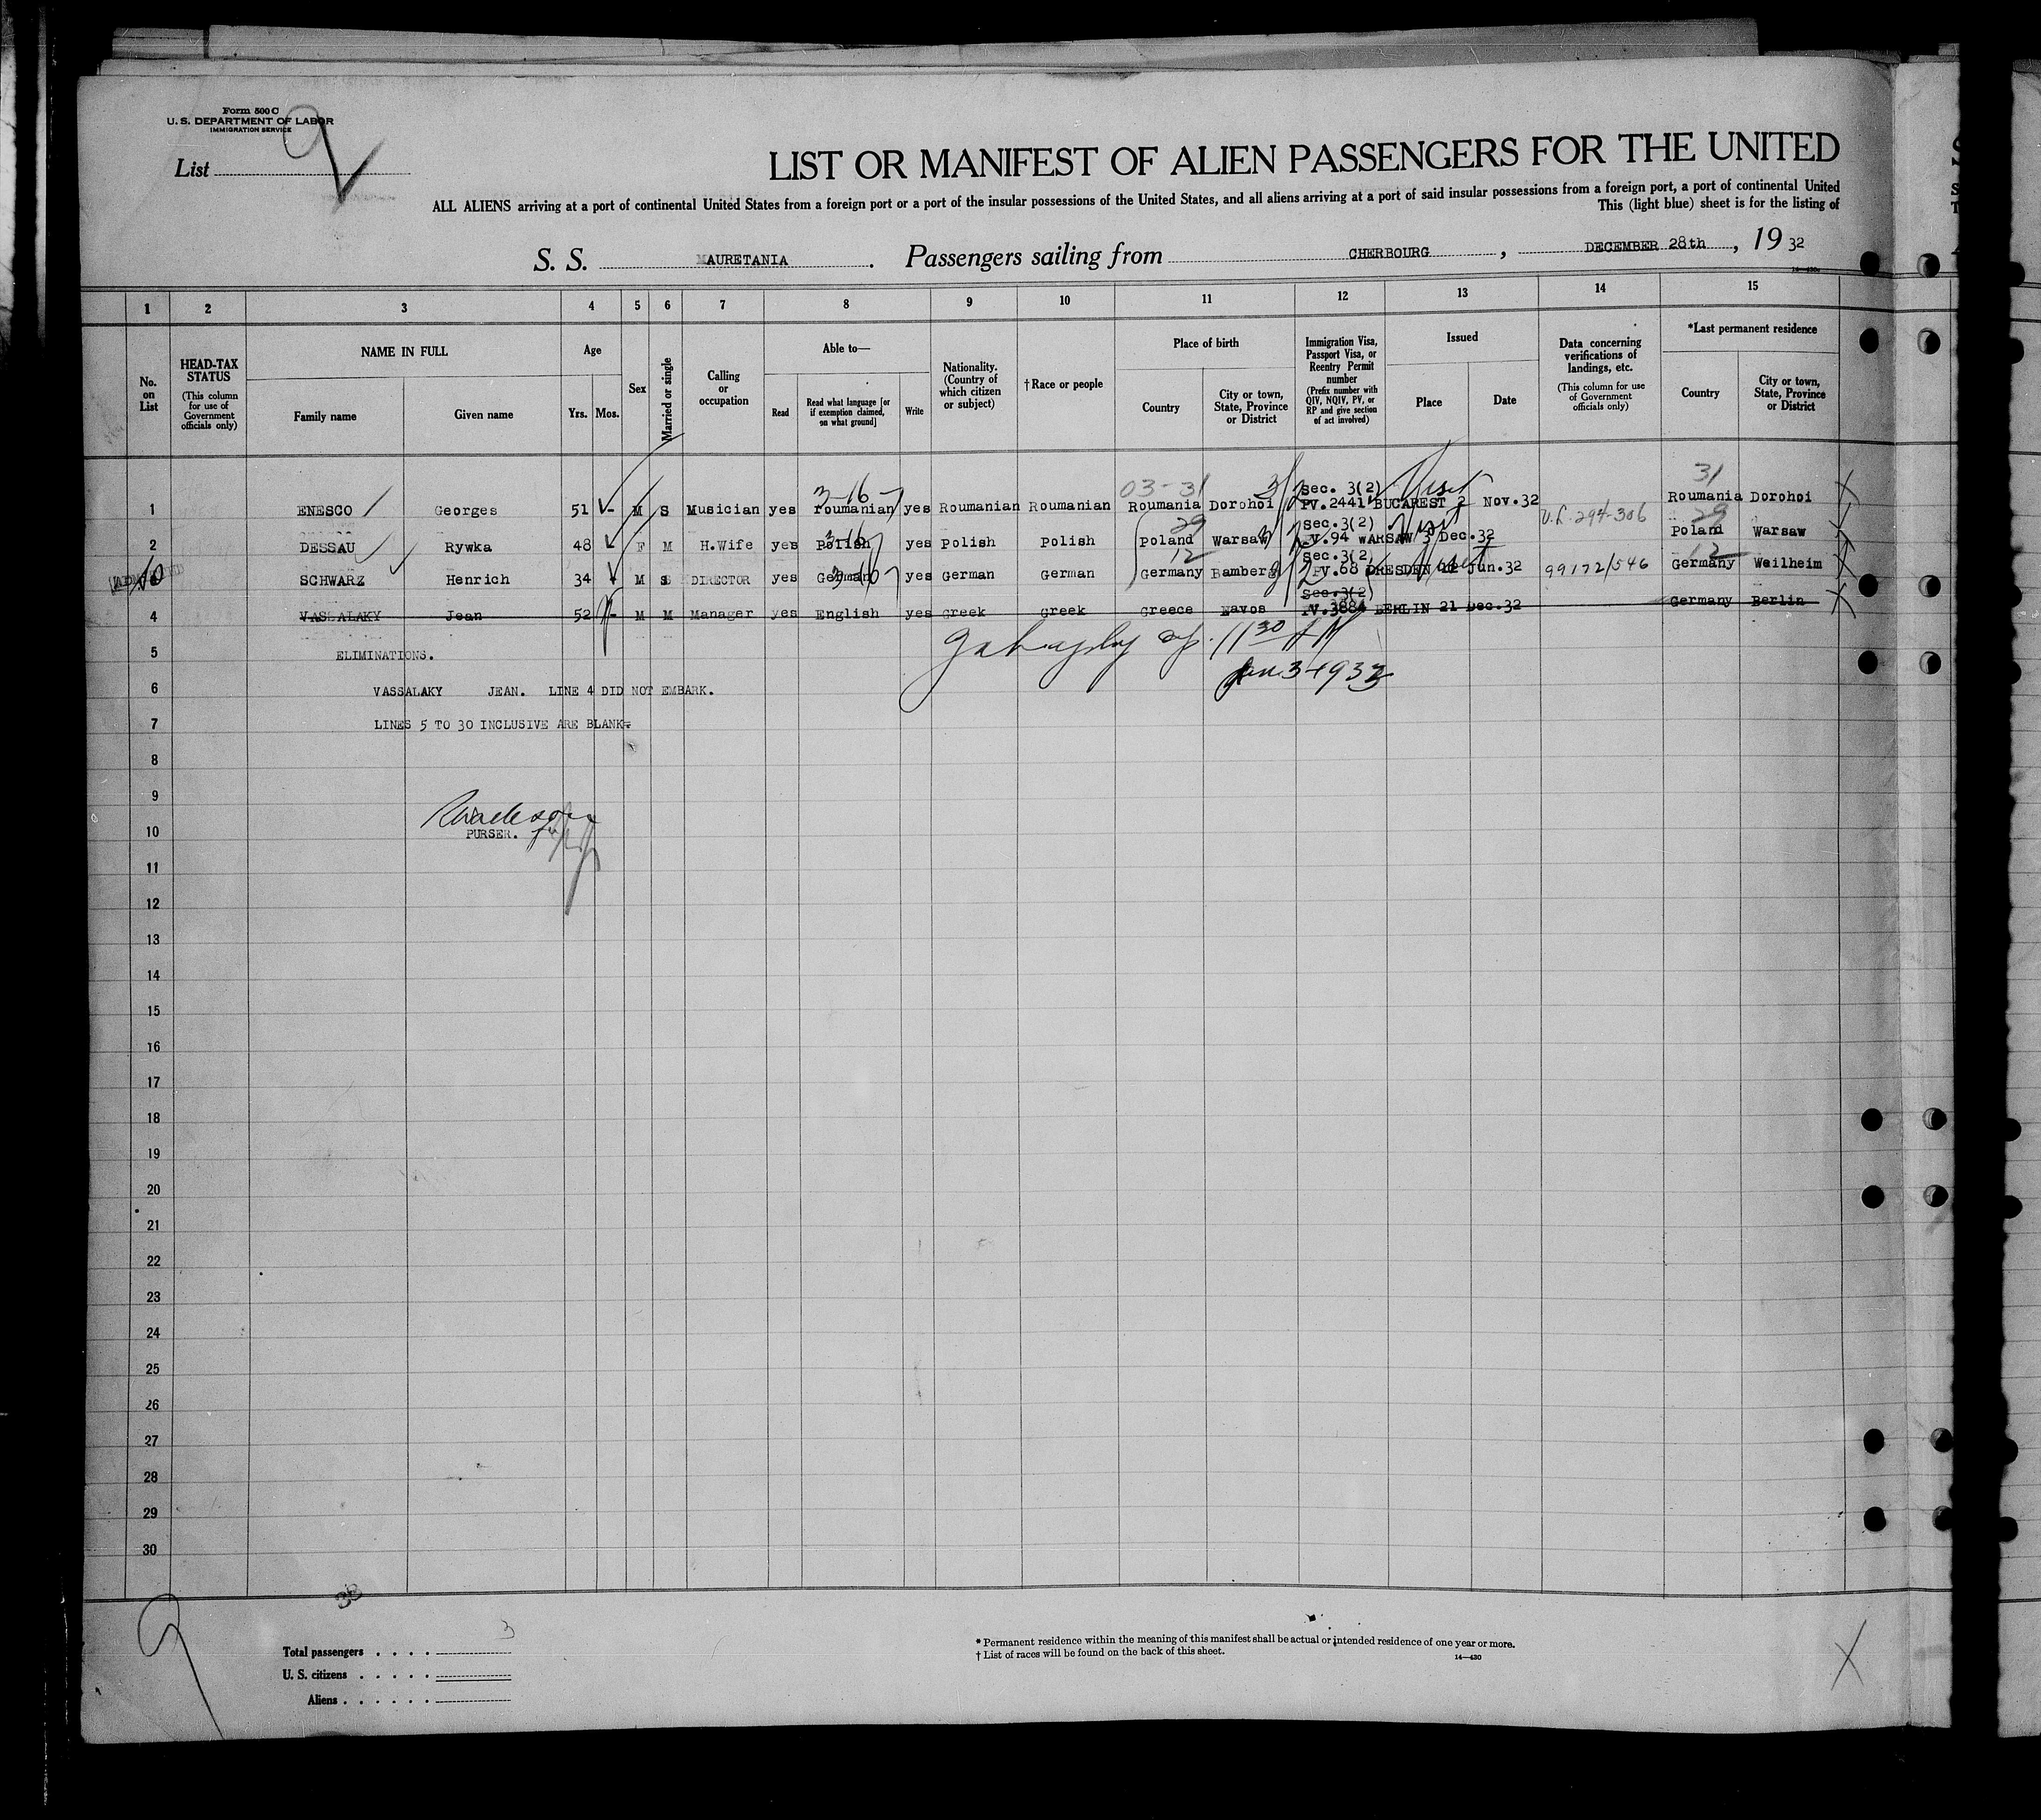 Form 500 C
U. S. DEPARTMENT OF LABOR
IMMIGRATION SERVICE
List 9
LIST OR MANIFEST OF ALIEN PASSENGERS FOR THE UNITED
ALL ALIENS arriving at a port of continental United States from a foreign port or a port of the insular possessions of the United States, and all aliens arriving at a port of said insular possessions from a foreign port, a port of continental United
This (light blue) sheet is for the listing of
S. S. MAURETANIA . Passengers sailing from CHERBOURG , DECEMBER 28th , 19 32
1 2 3 4 5 6 7 8 9 10 11 12 13 14 15
No. on List
HEAD-TAX STATUS (This column for use of Government officials only)
NAME IN FULL
Family name
Given name
Age
Yrs. Mos.
Sex
Married or single
Calling or occupation
Able to—
Read
Read what language [or if exemption claimed, on what ground]
Write
Nationality. (Country of which citizen or subject)
†Race or people
Place of birth
Country
City or town, State, Province or District
Immigration Visa, Passport Visa, or Reentry Permit number (Prefix number with QIV, NQIV, PV, or RP and give section of act involved)
Issued
Place
Date
Data concerning verifications of landings, etc. (This column for use of Government officials only)
*Last permanent residence
Country
City or town, State, Province or District
3-16 03-31 Sec. 3(2) 31
1 ENESCO Georges 51 - M S Musician yes roumanian yes Roumanian Roumanian Roumania Dorohoi PV.2441 BUCAREST 2 Nov.32 Roumania Dorohoi
3-16 29 Sec.3(2) V.L. 294-306 29
2 DESSAU Rywka 48 F M H.Wife yes Polish yes Polish Polish Poland Warsaw PV.94 WARSAW 3 Dec.32 Poland Warsaw
12 Sec.3(2) 12
3 SCHWARZ Henrich 34 M S DIRECTOR yes German yes German German Germany Bamberg PV.68 DRESDEN Jun.32 99172/546 Germany Weilheim
Sec.3(2)
4 VASSALAKY Jean 52 - M M Manager yes English yes Greek Greek Greece PV.3884 BERLIN 21 Dec.32 Germany Berlin
11 30 AM
5 ELIMINATIONS.
Jan. 3 1933
6 VASSALAKY JEAN. LINE 4 DID NOT EMBARK.
7 LINES 5 TO 30 INCLUSIVE ARE BLANK.
8
9
10 PURSER.
11
12
13
14
15
16
17
18
19
20
21
22
23
24
25
26
27
28
29
30
9
38
Total passengers . . . . 3
U. S. citizens . . . . .
Aliens . . . . . .
* Permanent residence within the meaning of this manifest shall be actual or intended residence of one year or more.
† List of races will be found on the back of this sheet.
14—430